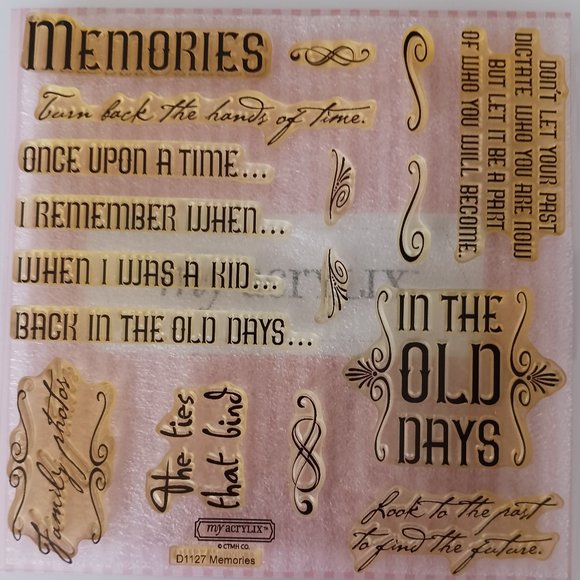 MEMORIES
Turn back the hands of time.
ONCE UPON A TIME...
I REMEMBER WHEN...
WHEN I WAS A KID...
BACK IN THE OLD DAYS...
DON'T LET YOUR PAST
DICTATE WHO YOU ARE NOW
BUT LET IT BE A PART
OF WHO YOU WILL BECOME.
my ACRYLIX™
IN THE
OLD
DAYS
Family photos
the ties
that bind
Look to the past
to find the future.
my ACRYLIX™
© CTMH CO.
D1127 Memories